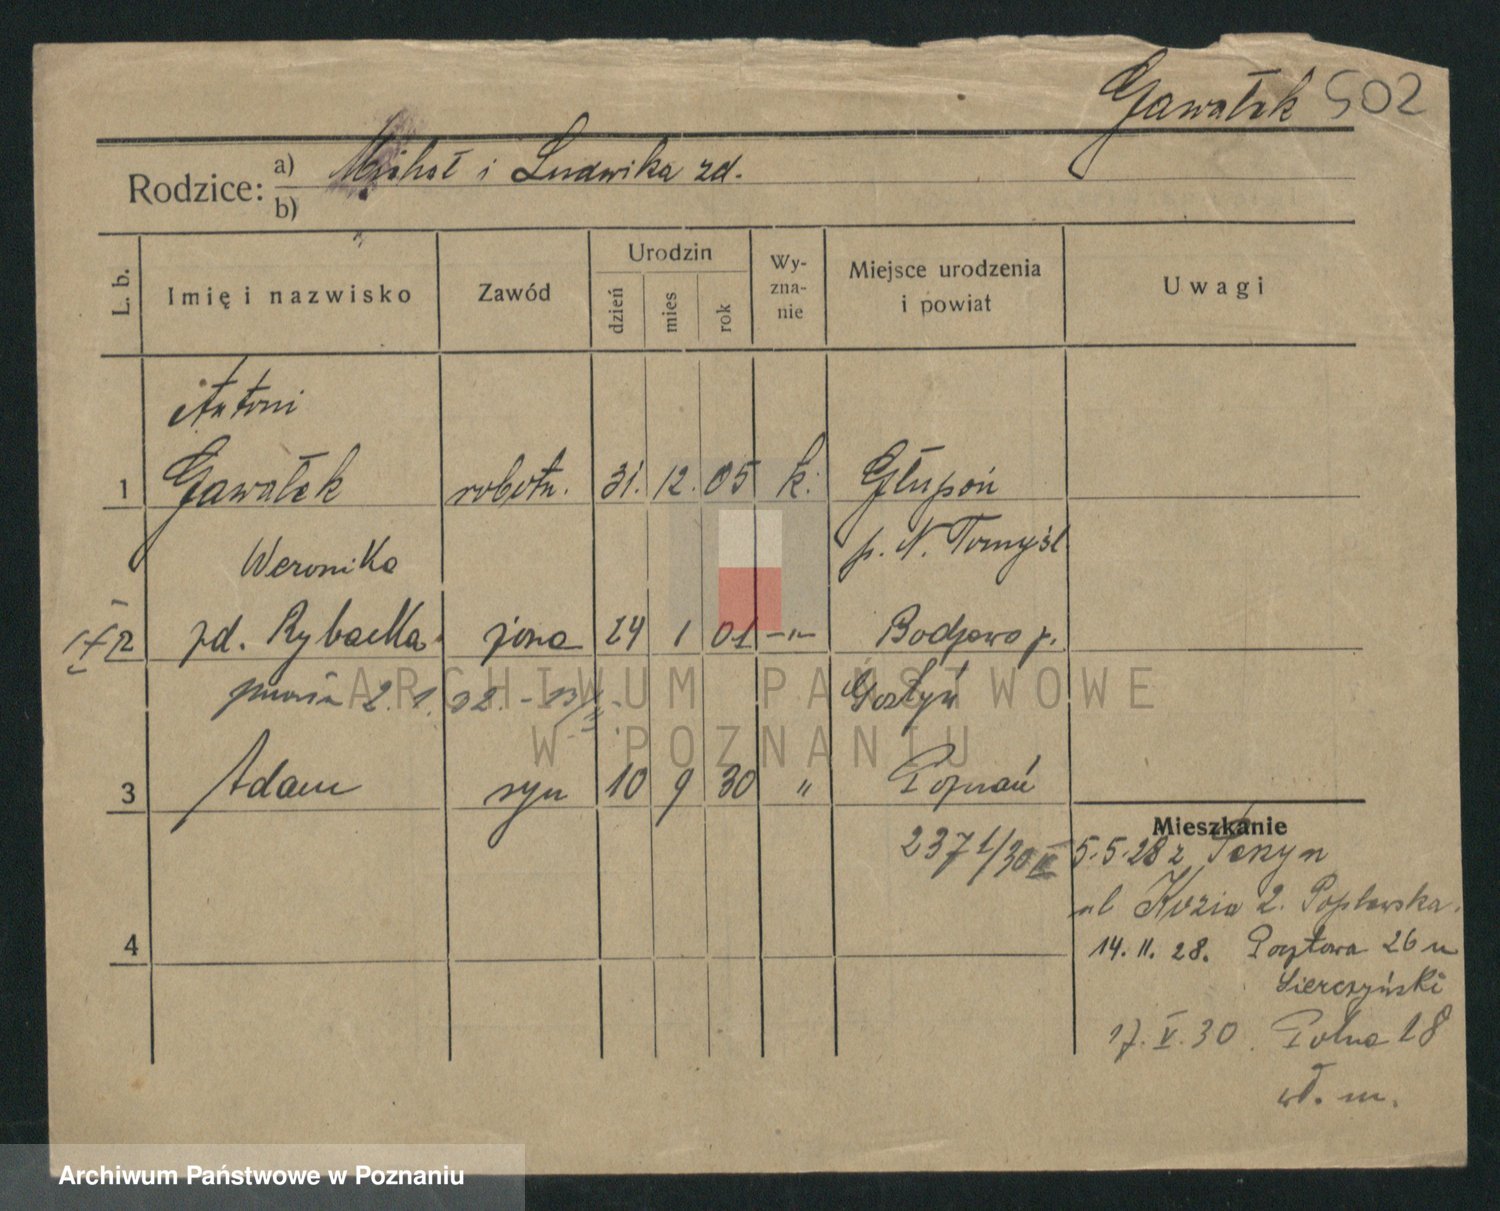 Gawałek 502
Rodzice: a) Michał i Ludwika zd.
b)
L. b.
Imię i nazwisko
Zawód
Urodzin
dzień
mies
rok
Wy-
zna-
nie
Miejsce urodzenia
i powiat
Uwagi
Antoni
1 Gawałek robotn. 31. 12. 05 k. Głupoń
p. N. Tomyśl
Weronika
2 zd. Rybacka żona 24 1 01 -"- Bodzewo p.
2. 1. 32. Gostyń
3 Adam syn 10 9 30 " Poznań
2371/30
4
Mieszkanie
5.5.28 z
ul Kozia 2. Popławska.
14. 11. 28. Pocztowa 26 m
Sierczyński
17. V. 30. Polna 18
wł. m.
ARCHIWUM PAŃSTWOWE
W POZNANIU
Archiwum Państwowe w Poznaniu